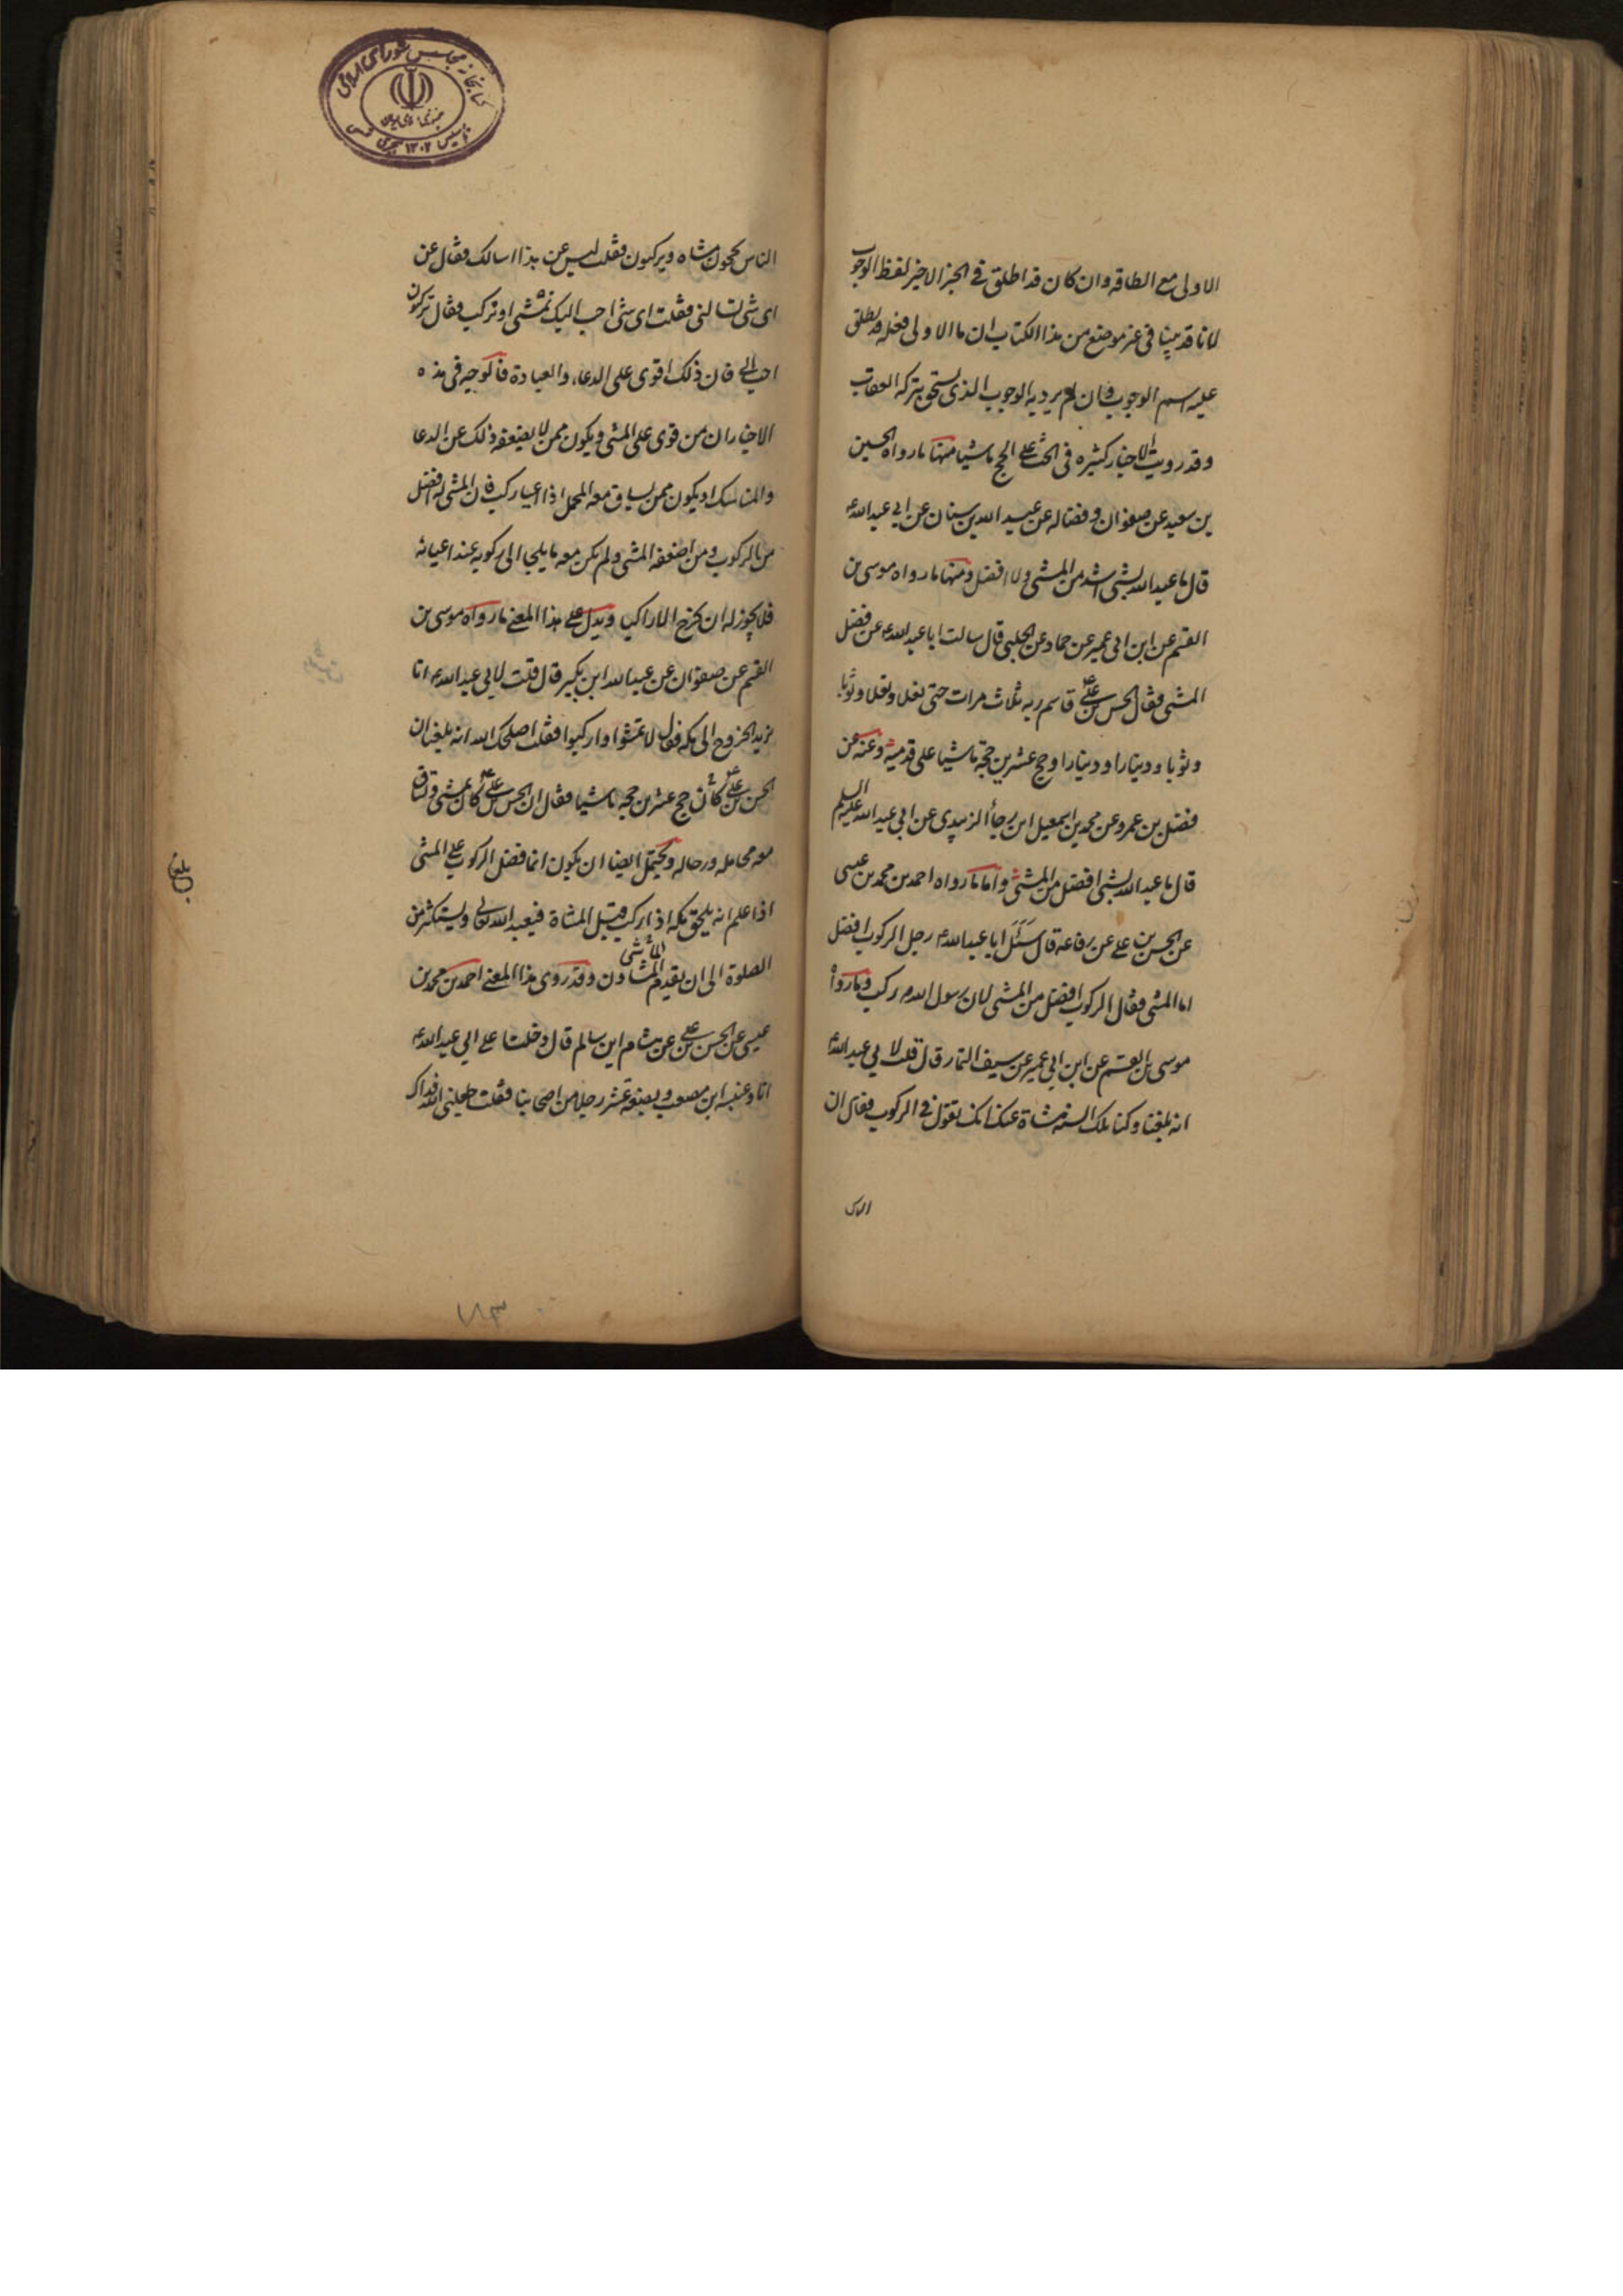 الاولى مع الطاقه وان كان قد اطلق في الخبر الاخير لفظ الوجوب
لانا قد بينا في غير موضع من هذا الكتاب ان ما الاولى فعله قد يطلق
عليه اسم الوجوب وان لم يرد به الوجوب الذي يستحق بتركه العقاب
وقد رويت الاخبار كثيره في الحث على الحج ماشيا منها ما رواه الحسين
بن سعيد عن صفوان وفضاله عن عبد الله بن سنان عن ابي عبد الله ع
قال ما عبد الله بشئ اشد من المشى ولا افضل ومنها ما رواه موسى بن
القسم عن ابن ابي عمير عن حماد عن الحلبي قال سالت ابا عبد الله ع عن فضل
المشى فقال الحسن بن علي ع قاسم ربه ثلاث مرات حتى نعلا ونعلا وثوبا
وثوبا ودينارا ودينارا وحج عشرين حجة ماشيا على قدميه وعنه عن
فضل بن عمرو عن محمد بن اسمعيل ابن رجأ الزبيدي عن ابي عبد الله عليه السلم
قال ما عبد الله بشئ افضل من المشى واما ما رواه احمد بن محمد بن عيسى
عن الحسن بن علي عن رفاعه قال سَئَلَ ابا عبد الله ع رجل الركوب افضل
ام المشى فقال الركوب افضل من المشى لان رسول الله ص ركب وما رواه
موسى بن القسم عن ابن ابي عمير عن سيف التمار قال قلت لابي عبد الله ع
انه بلغنا وكنا تلك السنه مشاة عنك انك تقول في الركوب فقال ان
الناس
الناس يحجون مشاه ويركبون فقلت ليس عن هذا اسالك فقال عن
اى شئ تسالنى فقلت اى شئ احب اليك نمشى او نركب فقال تركبون
احب الى فان ذلك اقوى على الدعاء والعبادة فالوجه في هذه
الاخبار ان من قوى على المشى ويكون ممن لا يضعفه ذلك عن الدعا
والمناسك او يكون ممن يساق معه المحمل اذا اعيا ركب فان المشى له افضل
من الركوب ومن اضعفه المشى ولم يكن معه ما يلجا الى ركوبه عند اعيائه
فلا يجوز له ان يخرج الا راكبا ويدل على هذا المعنى ما رواه موسى بن
القسم عن صفوان عن عبد الله ابن بكير قال قلت لابي عبد الله ع انا
نريد الخروج الى مكه فقال لا تمشوا واركبوا فقلت اصلحك الله انه بلغنا ان
الحسن بن علي ع كان حج عشرين حجه ماشيا فقال ان الحسن بن علي ع كان يمشى وتساق
معه محامله ورحاله ويحتمل ايضا ان يكون انما فضل الركوب على المشى
اذا علم انه يلحق مكه اذا ركب قبل المشاة فيعبد الله تعالى ويستكثر من
الصلوة الى ان يقدم المشاون وقد روى هذا المعنى احمد بن محمد بن
عيسى عن الحسن بن علي عن هشام ابن سالم قال دخلنا على ابي عبد الله ع
انا وعنبسه ابن مصعب وبضعة عشر رجلا من اصحابنا فقلت جعلنى الله فداك
كتابخانه مجلس شوراى اسلامى
تاسيس ١٣٠٢ هجرى شمسى
١٨٣